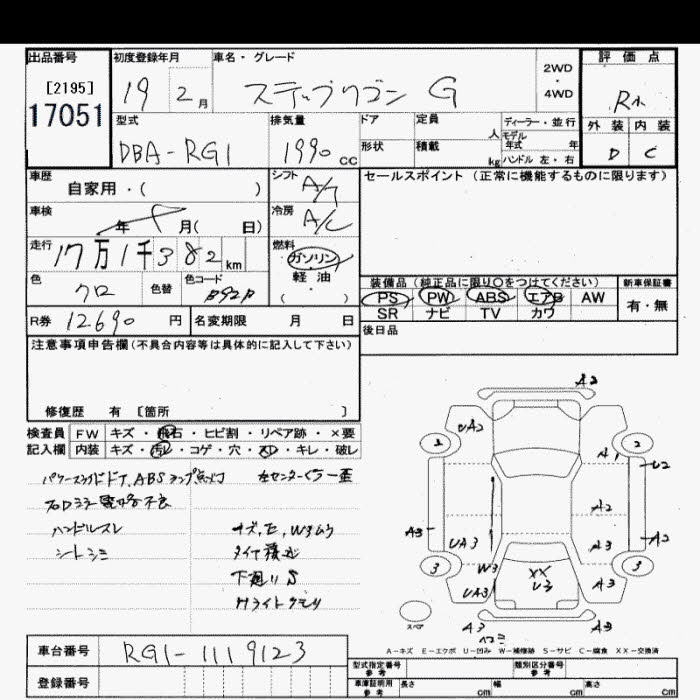 出品番号 初度登録年月 車名・グレード 評価点
[2195] 19 2月 ステップワゴン G 2WD・4WD R
17051 外装 内装
型式 排気量 ドア 定員 人 ディーラー・並行
DBA-RG1 1990cc 形状 積載 kg モデル年式 年 D C
ハンドル 左・右
車歴 シフト セールスポイント (正常に機能するものに限ります)
自家用・( ) A/T
車検 年 月( 日) 冷房 A/C
走行 17万1千382km 燃料 ガソリン 軽油 ( )
色 クロ 色替 色コード B92P
装備品 (純正品に限り○をつけてください) 新車保証書
PS PW ABS エアB AW 有・無
SR ナビ TV カワ
R券 12690円 名変期限 月 日 後日品
注意事項申告欄(不具合内容等は具体的に記入して下さい)
修復歴 有 [箇所 ]
検査員 FW キズ・飛石・ヒビ割・リペア跡・×要
記入欄 内装 キズ・汚レ・コゲ・穴・スレ・キレ・破レ
ハンドルスレ キズ、E、W
シートシミ
下廻りS
Hライトクモリ
A2
UA2
2 2
A1
U2
A2
A3 A2
UA3 A3
W3 XX
3 U3 3
UA3 A3
スペア
A3 A3
A-キズ E-エクボ U-凹み W-補修跡 S-サビ C-腐食 XX-交換済
車台番号 RG1-1119123
型式指定番号参考 類別区分番号参考
登録番号 車庫証明用参考 長さ cm 幅 cm 高さ cm